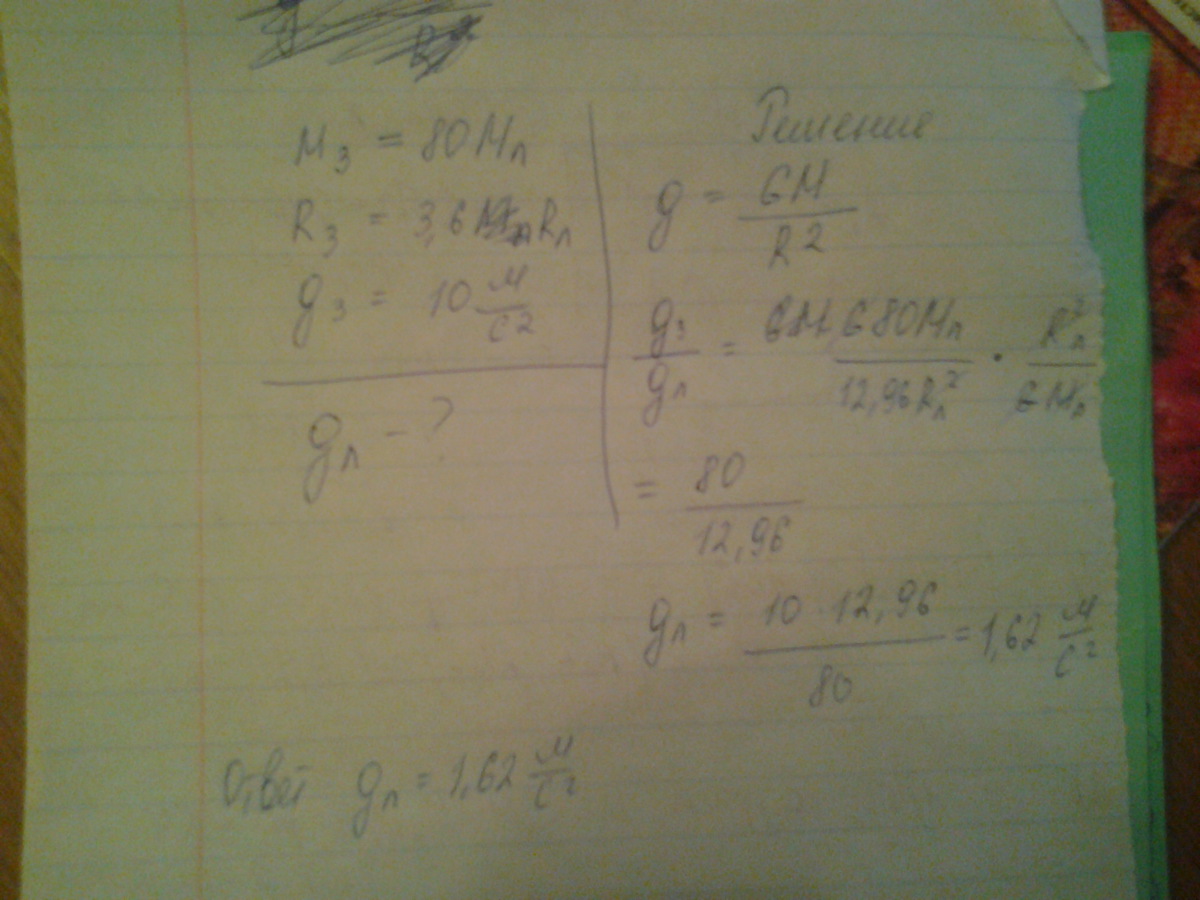 M₃ = 80Mл
R₃ = 3,6 Rл
g₃ = 10 м/с²
gл - ?
Решение
g = GM/R²
g₃/gл = G80Mл/12,96Rл² · Rл²/GMл
= 80/12,96
gл = 10·12,96/80 = 1,62 м/с²
Ответ gл = 1,62 м/с²